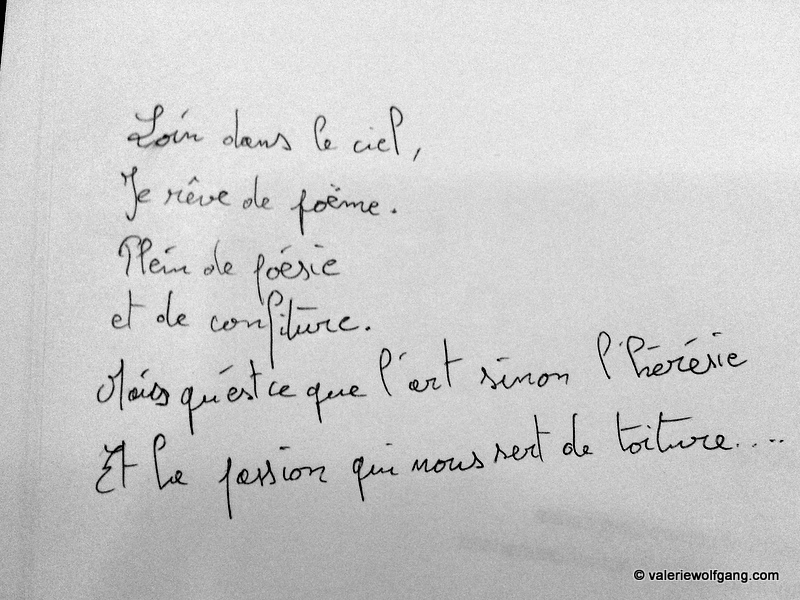 Loin dans le ciel,
Je rêve de poème.
Plein de poésie
et de confiture.
Mais qu'est ce que l'art sinon l'hérésie
Et la passion qui nous sert de toiture....
© valeriewolfgang.com